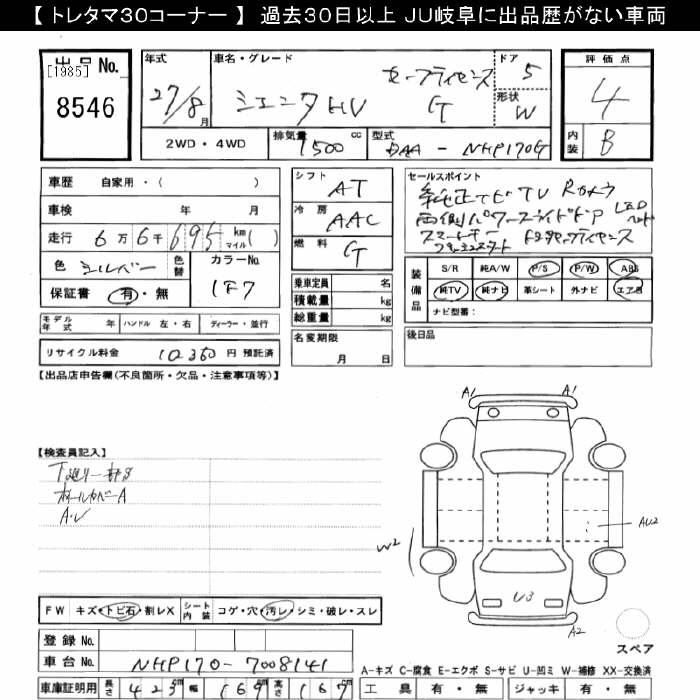 【 トレタマ30コーナー 】 過去30日以上 JU岐阜に出品歴がない車両
出品 No.
[1985]
8546
年式 27/8月
車名・グレード セーフティセンス
シエンタ HV G
ドア 5
形状 W
評価点 4
内装 B
2WD・4WD
排気量 1500 cc
型式 DAA - NHP170G
車歴 自家用・( )
車検 年 月
走行 6万 6千 695 km マイル( )
色 シルバー 色替
カラーNo. 1F7
保証書 有・無
シフト AT
冷房 AAC
燃料 G
乗車定員 名
積載量 kg
総重量 kg
セールスポイント
純正ナビTV Rカメラ
両側パワースライドドア LED
スマートキー
プッシュスタート
装備品
S/R 純A/W P/S P/W ABS
純TV 純ナビ 革シート 外ナビ エアB
ナビ型番:
モデル年式 年 ハンドル 左・右 ディーラー・並行
リサイクル料金 10350 円 預託済
名変期限 月 日
後日品
【出品店申告欄(不良箇所・欠品・注意事項等)】
【検査員記入】
下廻り一部S
ホイールカバーA
A・U
A1 A1
W2
AU2
U3
A2
スペア
FW キズ・トビ石・割レX
シート内装 コゲ・穴・汚レ・シミ・破レ・スレ
登録 No.
車台 No. NHP170-7008141
A-キズ C-腐食 E-エクボ S-サビ U-凹ミ W-補修 XX-交換済
車庫証明用 長さ 423 cm 幅 169 cm 高さ 167 cm
工具 有・無 ジャッキ 有・無